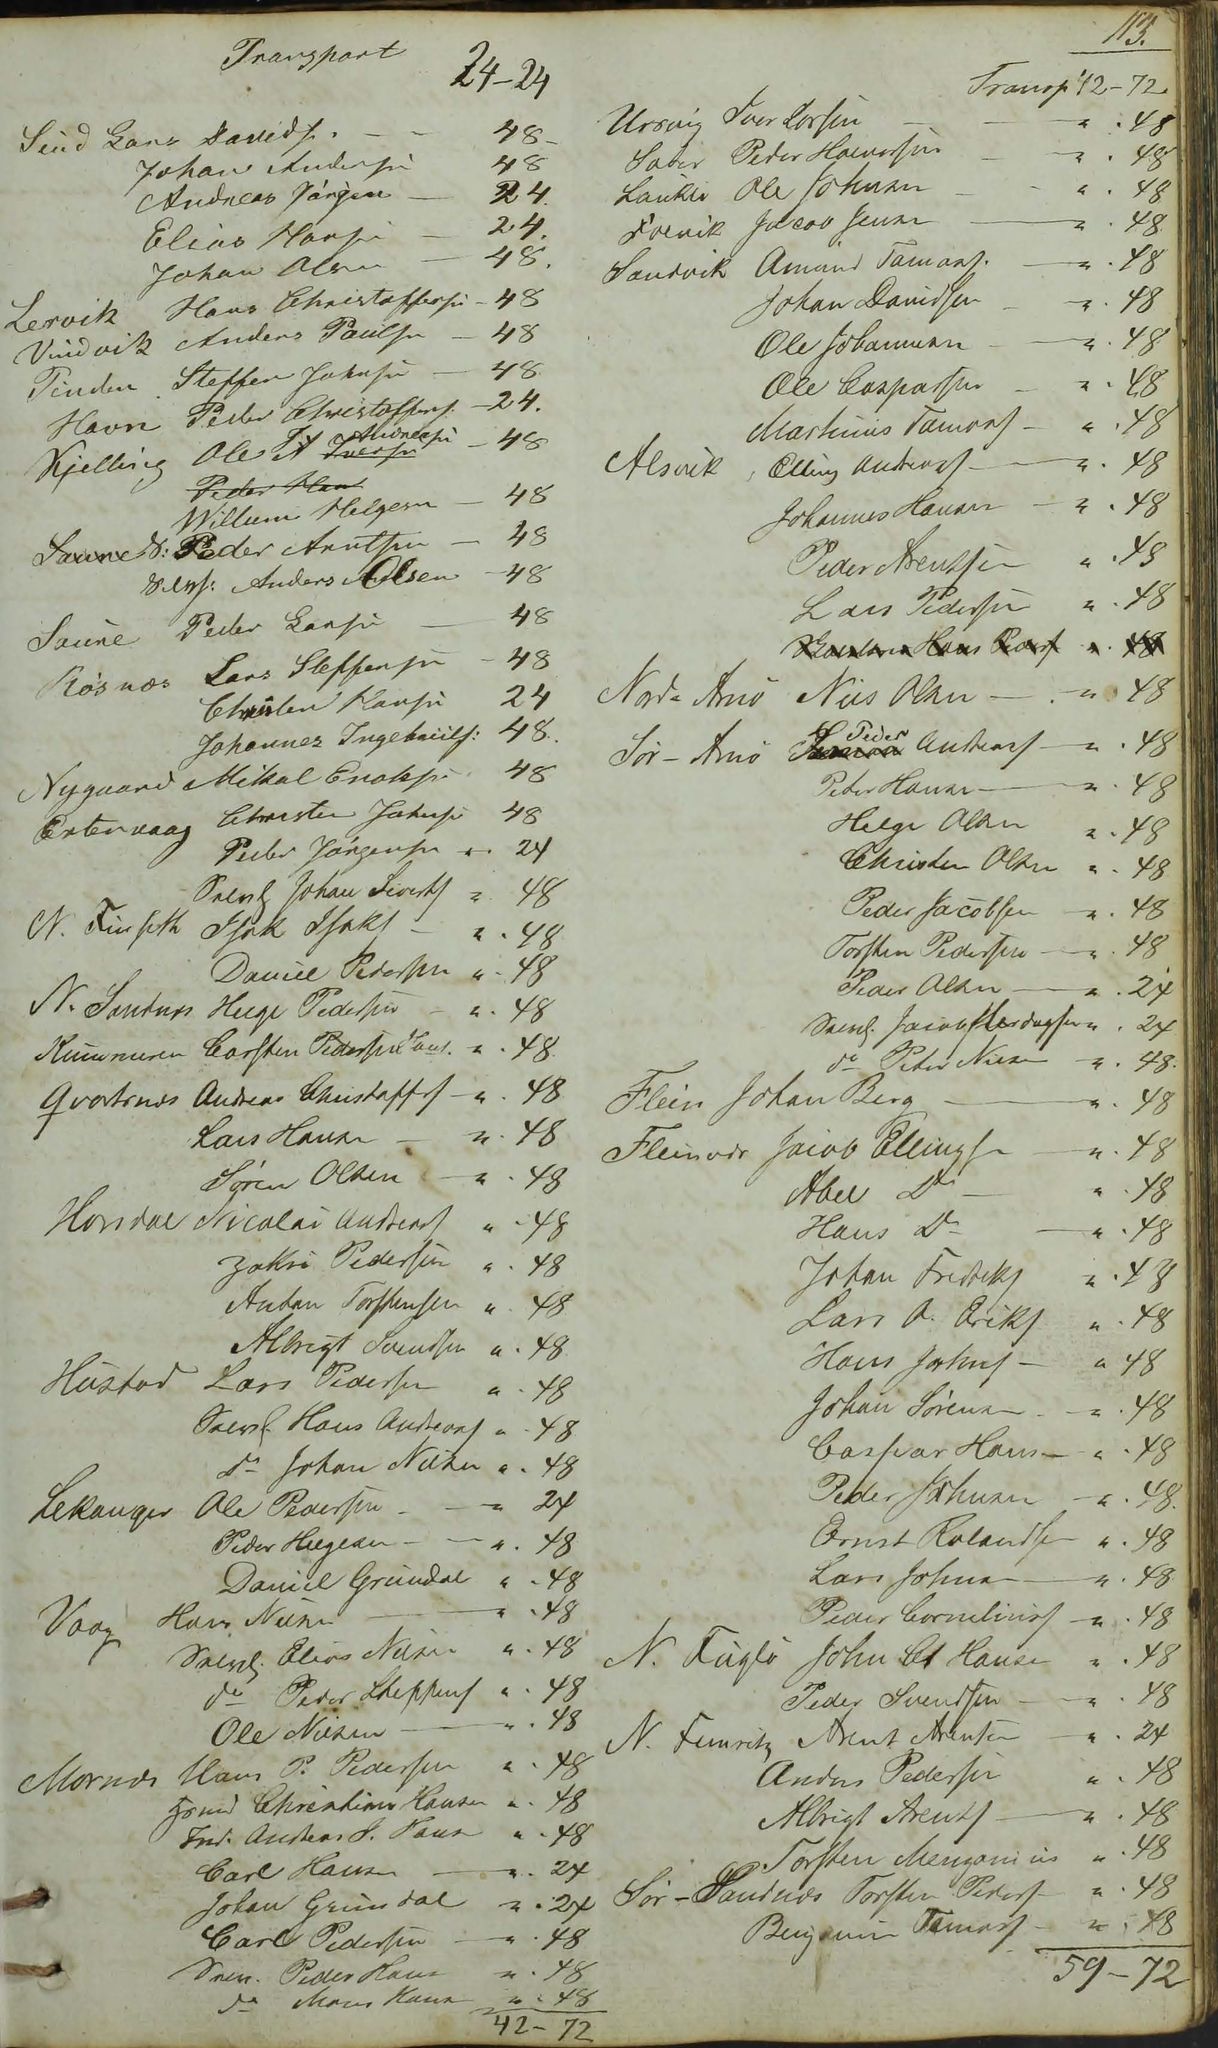 113.
Transport 24-24
Sund Lars Davids. - - 48-
Johan Andersen 48
Andreas Jörgen - 24.
Elias Hansen - 24.
Johan Olsen - 48.
Lervik Hans Christoffersen - 48
Vindvik Anders Paulsen - 48
Tinden Steffen Johnsen - 48
Havn Peder Christoffers. - 24.
Kjelling Ole A Andreasen Iversen - 48
Peder Han
Willum Helgesen - 48
Saune N: Peder Arntsen - 48
Anders Olsen - 48
Saune Peder Larsen - 48
Rösnæs Lars Steffensen - 48
Christen Hansen 24
Johannes Ingebrigts: 48.
Nygaard Mikal Enoksen 48
Estenvaag Christen Johnsen 48
Peder Jörgensen " 24
Svends Johan Siverts " 48
N. Finseth Isak Isaks - " . 48
Daniel Pedersen " . 48
N. Sandnes Helge Pedersen - " . 48
Carsten Pedersen " . 48
Qvartnæs Andreas Christoffs - " . 48
Lars Hansen - " . 48
Sören Olsen - " . 48
Horsdal Nicolai Andreas " . 48
Zakri Pedersen " . 48
Anton Torstensen " . 48
Albrigt Svendsen " . 48
Hustad Lars Pedersen " . 48
Hans Andreas " . 48
do Johan Nilsen " . 48
Lekanger Ole Pedersen - - " 24
Peder Helgesen - - " . 48
Daniel Grundal " . 48
Vaag Hans Nilsen - " . 48
Elias Nilsen " . 48
do Peder Steffens " . 48
Ole Nilsen - " . 48
Mornæs Hans P. Pedersen " . 48
Christian Hansen " . 48
Andreas J. Hansen " . 48
Carl Hansen - " . 24
Johan Grundal " . 24
Carl Pedersen - " . 48
Peder Hans " . 48
do Mons Hans " . 48
42-72
Transp 42-72
Ursvig Iver Larsen - - " . 48
Peder Halvorsen - " . 48
Ole Johnsen - - " . 48
Jacob Jensen - " . 48
Sandvik Amund Tamas. - " . 48
Johan Davidsen - " . 48
Ole Johannesen - " . 48
Ole Caspersen - " . 48
Martinus Tamas - " . 48
Alsvik Elling Andreas - " . 48
Johannes Hansen - " . 48
Peder Arentsen " . 48
Lars Pedersen " . 48
Hans Peders " . 48
Nord-Arnö Nils Olsen - . " 48
Sör-Arnö Peder Andreas - " . 48
Peter Hansen - " . 48
Helge Olsen " . 48
Christen Olsen " . 48
Peder Jacobsen - " . 48
Torsten Pedersen - " . 48
Peder Olsen - " . 24
Jacob Hardagsen " . 24
do Peder Nilsen - " . 48.
Flein Johan Berg - " . 48
Fleinvær Jacob Ellingsen - " . 48
Abel Do - " . 48
Hans Do - " . 48
Johan Fredriks " . 48
Lars A. Eriks " . 48
Hans Johns - " 48
Johan Sörensen - " . 48
Caspar Hans - " . 48
Peder Johnsen - " . 48.
Ernst Rolandsen " . 48
Lars Johnsen - " . 48
Peder Cornelius - " . 48
N. Fuglö John Ct Hansen " . 48
Peder Svendsen - " . 48
N. Arent Arentsen - " . 24
Anders Pedersen " . 48
Albrigt Arents - " . 48
Torsten " . 48
Sör-Sandnæs Torsten Peders - " . 48
Benjamin Tamas - " . 48
59-72